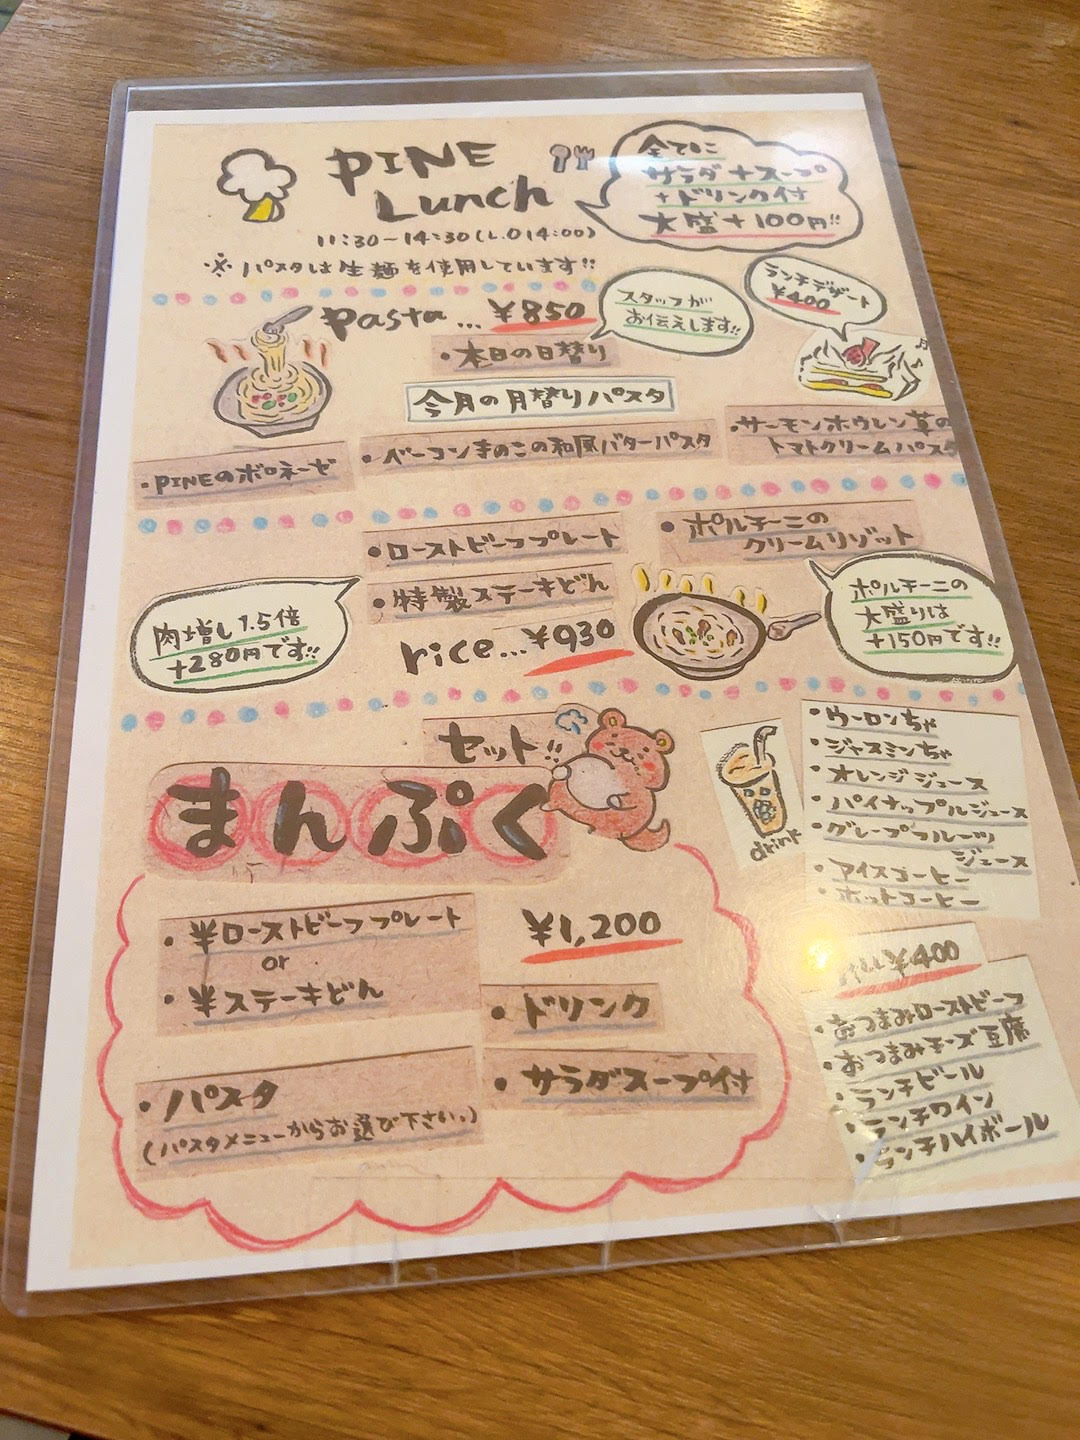 PINE
Lunch
全てに
サラダ+スープ
+ドリンク付
大盛+100円!!
11:30-14:30(L.O14:00)
※パスタは生麺を使用しています!!
Pasta...¥850
スタッフが
お伝えします!!
ランチデザート
¥400
・本日の日替り
今月の月替りパスタ
・PINEのボロネーゼ
・ベーコンきのこの和風バターパスタ
・サーモンホウレン草の
トマトクリームパスタ
・ローストビーフプレート
・特製ステーキどん
rice...¥930
・ポルチーニの
クリームリゾット
肉増し1.5倍
+280円です!!
ポルチーニの
大盛りは
+150円です!!
セット!!
まんぷく
・半ローストビーフプレート
or
・半ステーキどん
¥1,200
・ドリンク
・サラダスープ付
・パスタ
(パスタメニューからお選び下さい。)
drink
・ウーロンちゃ
・ジャスミンちゃ
・オレンジジュース
・パイナップルジュース
・グレープフルーツ
ジュース
・アイスコーヒー
・ホットコーヒー
¥400
・おつまみローストビーフ
・おつまみチーズ豆腐
・ランチビール
・ランチワイン
・ランチハイボール